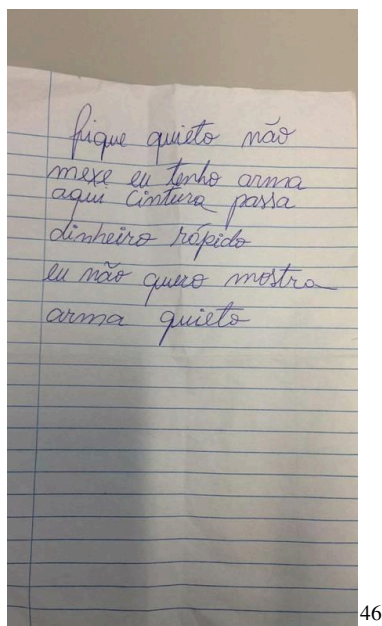 fique quieto não
mexe eu tenho arma
aqui cintura passa
dinheiro rápido
eu não quero mostra
arma quieto
46